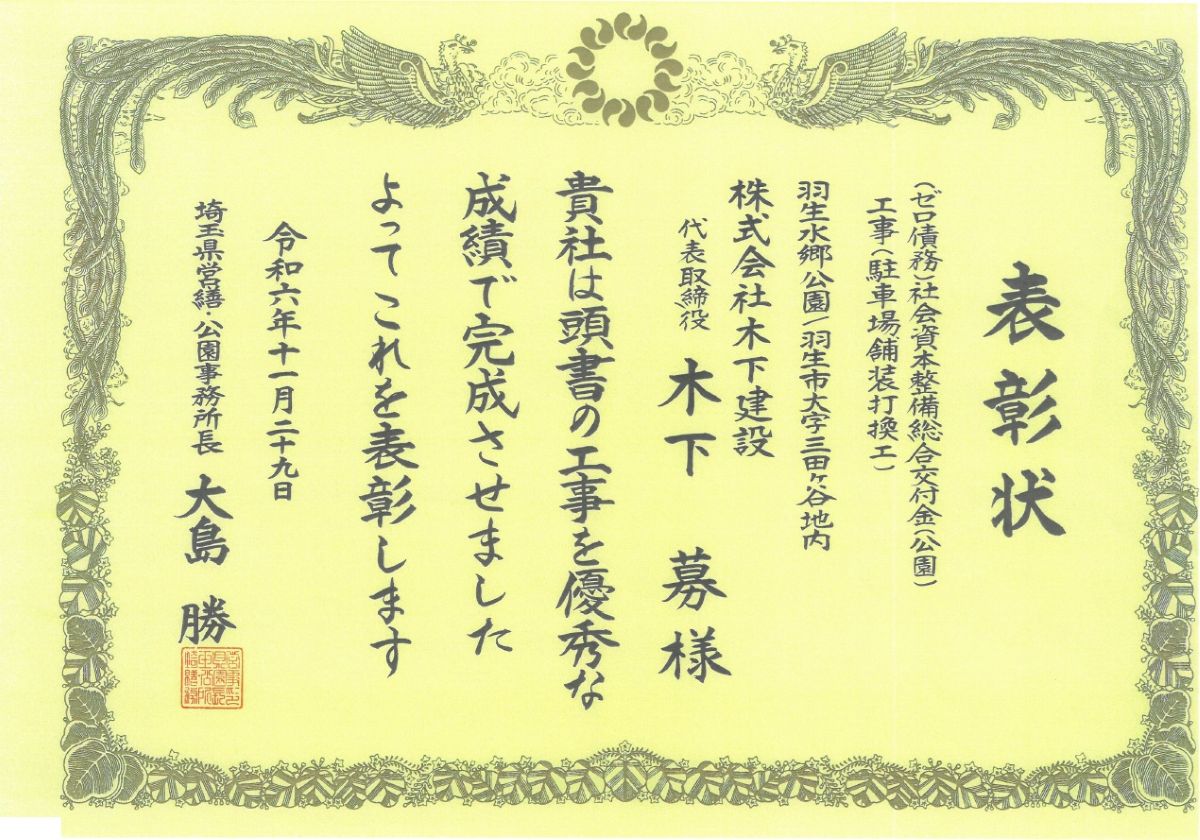 表彰状
(ゼロ債務)社会資本整備総合交付金(公園)
工事(駐車場舗装打換工)
羽生水郷公園/羽生市大字三田ヶ谷地内
株式会社木下建設
代表取締役 木下 募様
貴社は頭書の工事を優秀な
成績で完成させました
よってこれを表彰します
令和六年十一月二十九日
埼玉県営繕・公園事務所長 大島 勝